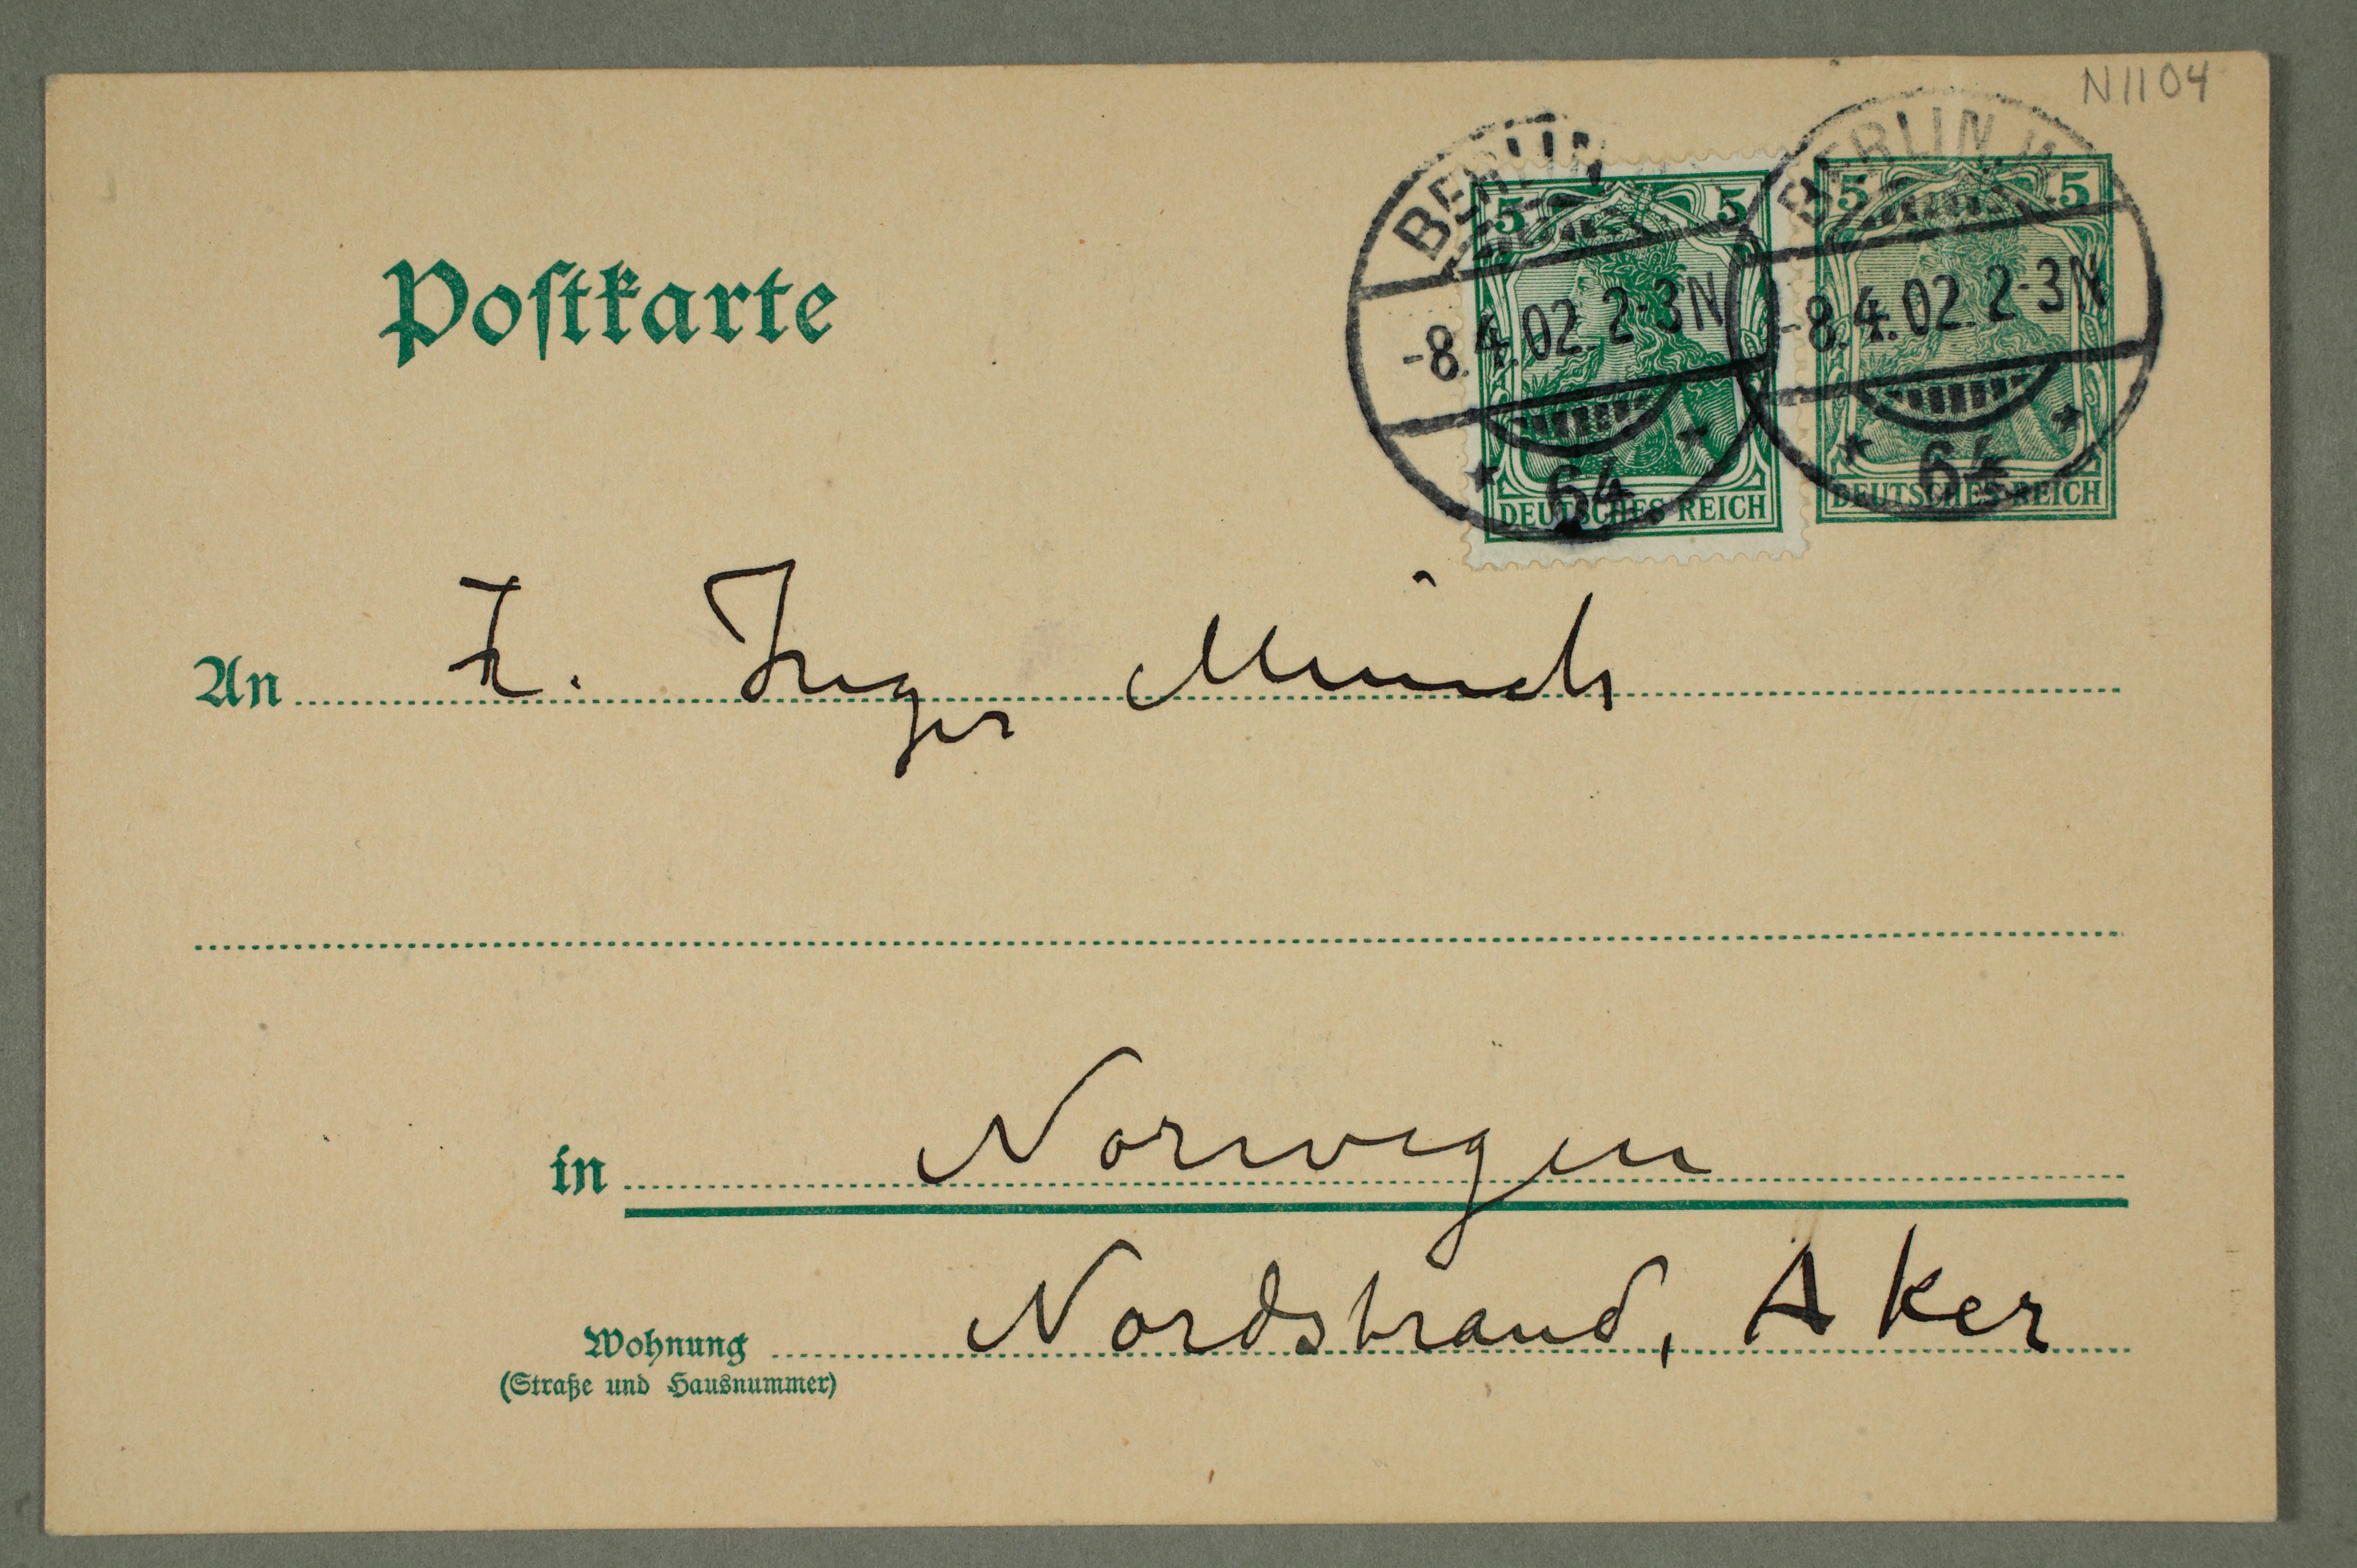 N1104
BERLIN
BERLIN W
5 5
5 5
-8.4.02. 2-3N
-8.4.02. 2-3N
64
64
DEUTSCHES REICH
DEUTSCHES REICH
Postkarte
An Fr. Inger Munch
in Norwegen
Wohnung Nordstrand, Aker
(Straße und Hausnummer)